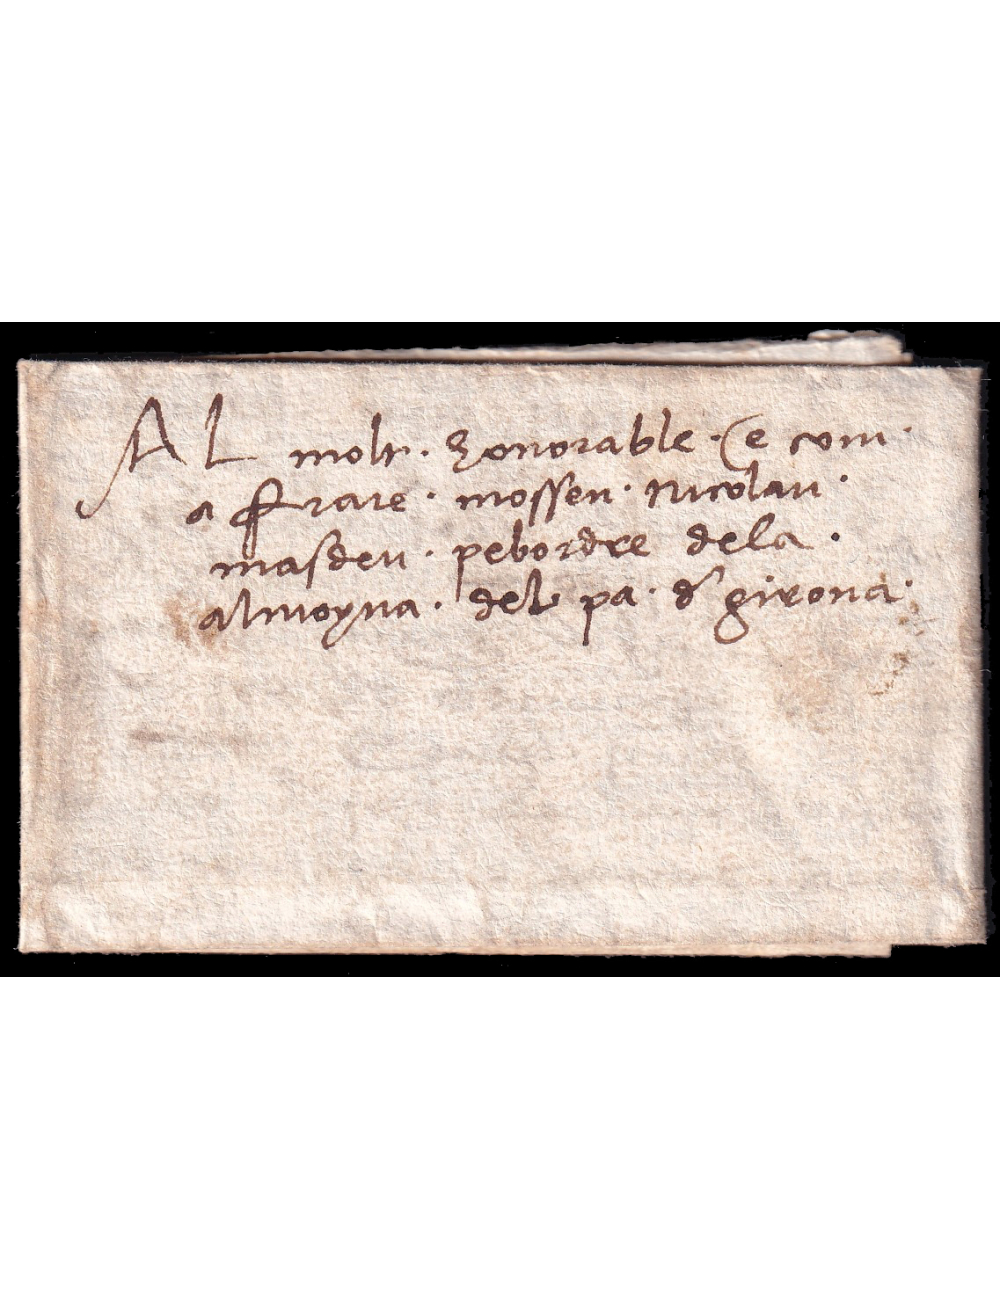 AL molt · honorable · (e com ·
a frare · mossen · nicolau ·
masdeu · pebordre dela ·
almoyna · del pa · d girona ·